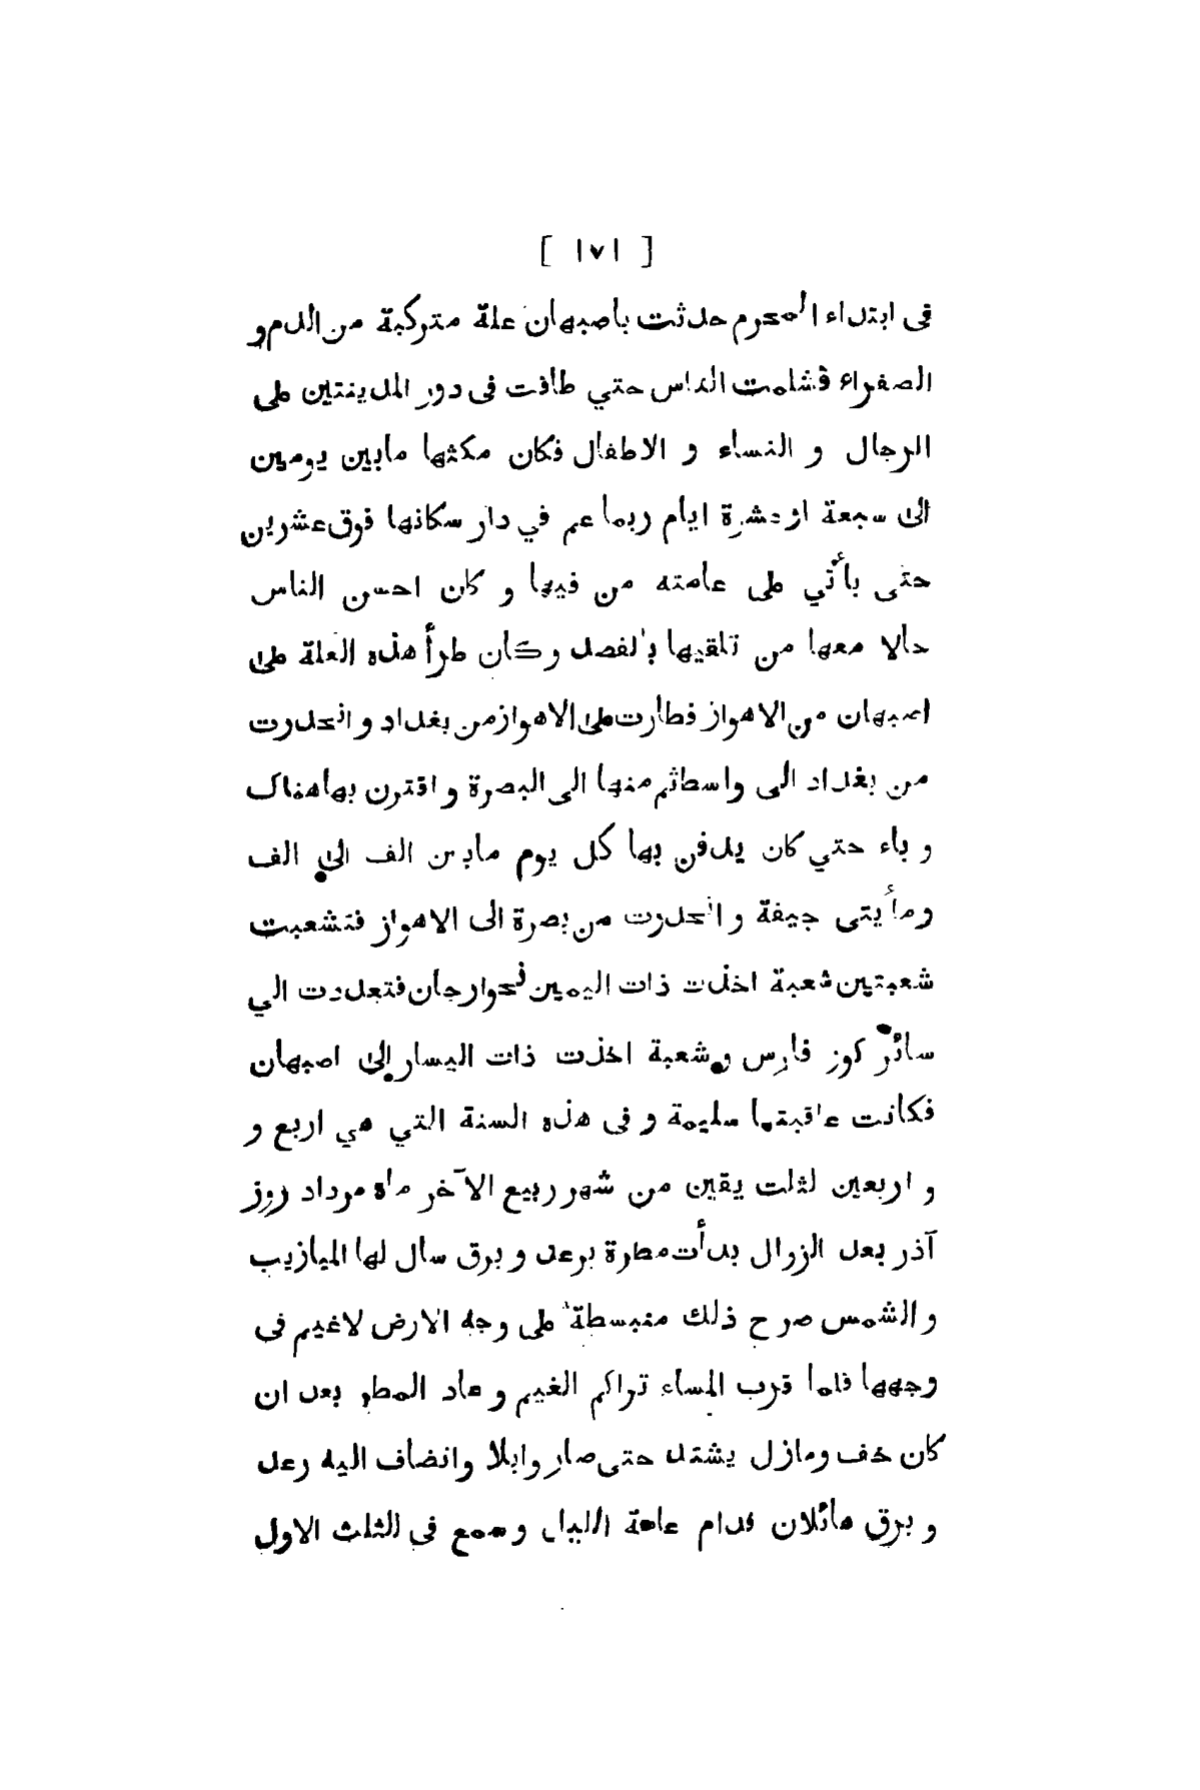 [ ۱۷۱ ]
فى ابتداء المحرم حدثت باصبهان علة متركبة من الدم و
الصفراء فشلمت الناس حتي طافت فى دور المدينتين على
الرجال و النساء و الاطفال فكان مكثها مابين يومين
الى سبعة او عشرة ايام ربما عم في دار سكانها فوق عشرين
حتى يأتي على عامته من فيها و كان احسن الناس
حالا معها من تلقيها بالفصد و كان طرأ هذه العلة على
اصبهان من الاهواز فطارت على الاهواز من بغداد و انحدرت
من بغداد الى واسط ثم منها الى البصرة و اقترن بها هناك
و باء حتي كان يدفن بها كل يوم مابين الف الى الف
ومأيتى جيفة و انحدرت من بصرة الى الاهواز فتشعبت
شعبتين شعبة اخذت ذات اليمين نحوارجان فتعددت الي
سائر كور فارس و شعبة اخذت ذات اليسار الى اصبهان
فكانت عاقبتها سليمة و فى هذه السنة التي هي اربع و
و اربعين لثلت يقين من شهر ربيع الآخر ماه مرداد روز
آذر بعد الزوال بدأت مطرة برعد و برق سال لها الميازيب
و الشمس صر ح ذلك منبسطة على وجه الارض لاغيم فى
وجهها فلما قرب المساء تراكم الغيم و عاد المطر بعد ان
كان خف ومازل يشتد حتى صار وابلا وانضاف اليه رعد
و برق هائلان فدام عامة الليل و سمع فى الثلث الاول